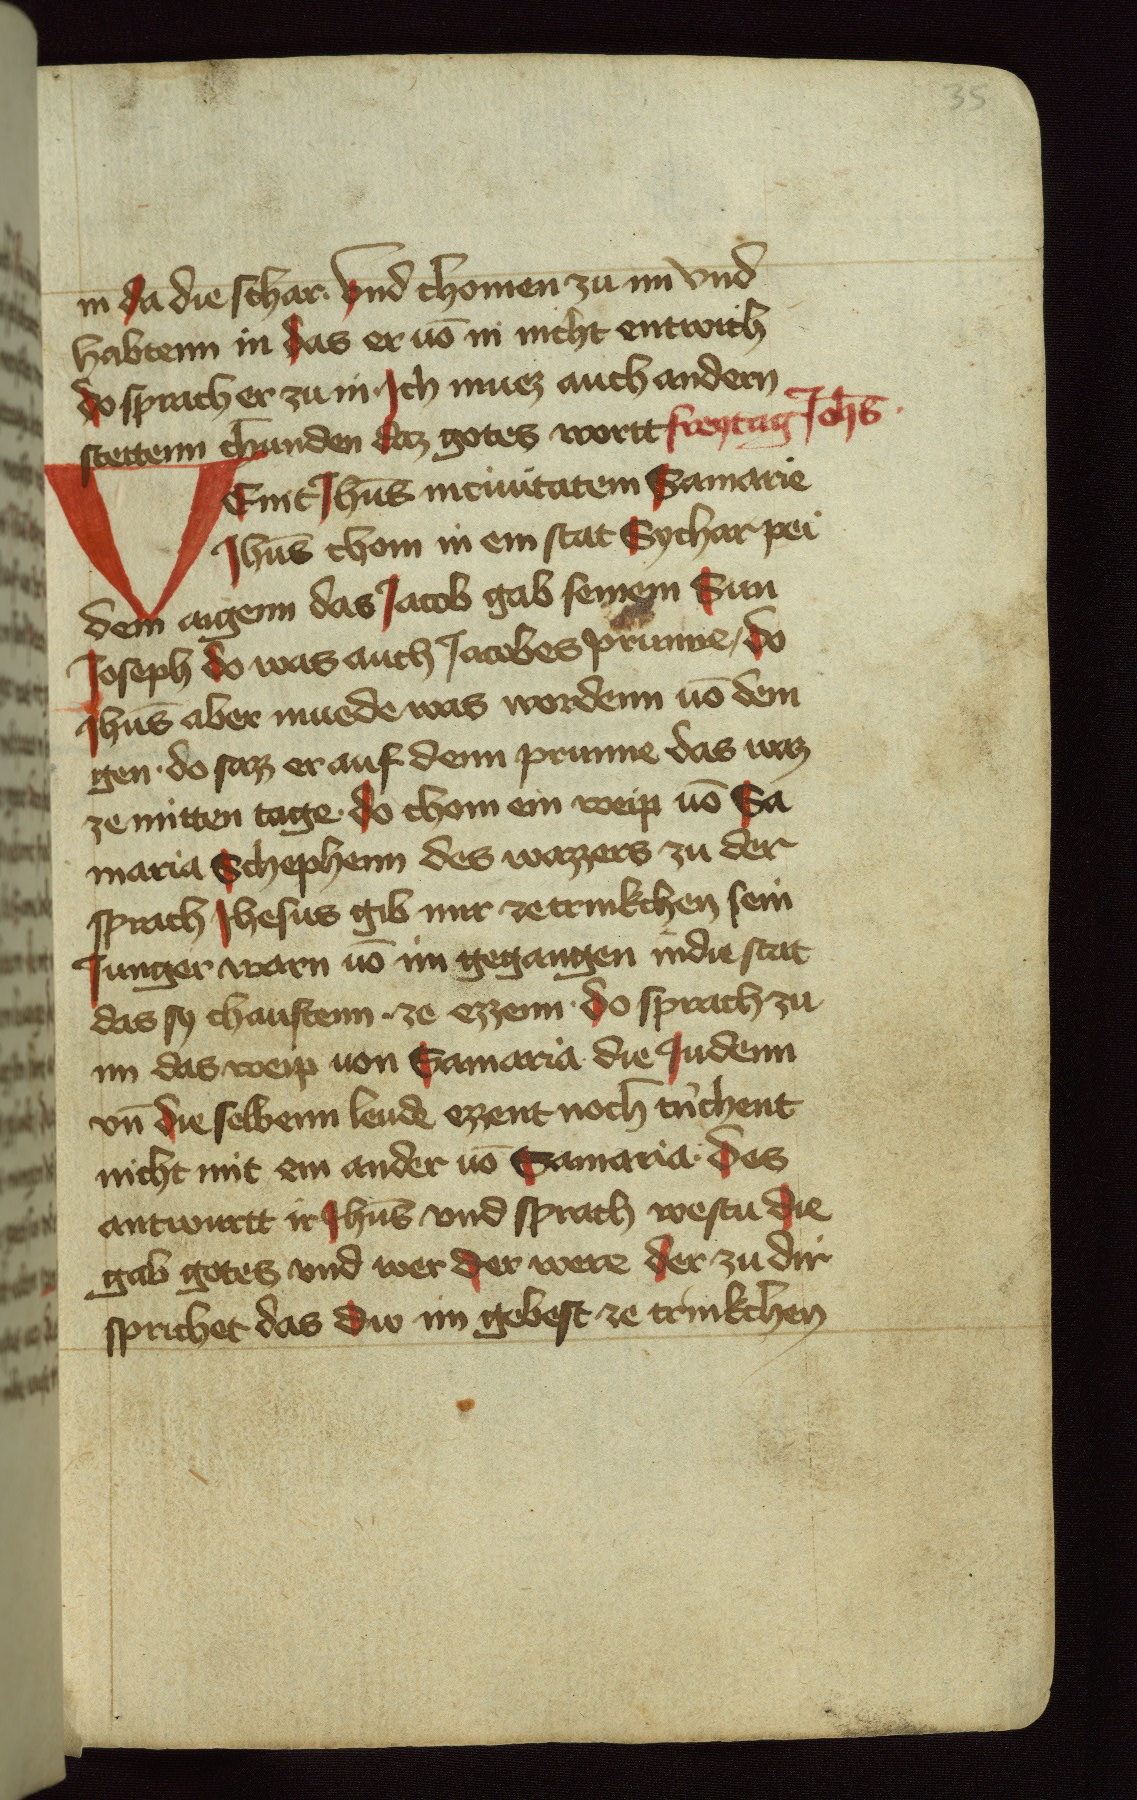 35
in da die schar. Vnd chomen zu im vnd
habtenn in das er uō in nicht entwich
do sprach er zu in. Ich muez auch andern
stettenn chunden daz gotes wortt freytag Joh̄s.
VEnit Jhūs in ciuitatem Samarie
Jhūs chom in ein stat Sychar pei
dem aigenn das Jacob gab seinem Sun
Joseph do was auch Jacobes prunne / do
Jhūs aber muede was wordenn uō dem
gen. do saz er auf denn prunne das waz
ze mitten tage. do chom ein weip uō Sa
maria Schephenn des wazzers zu der
sprach Jhesus gib mir ze trinkchen sein
Junger warn uō im gegangen in die stat
das sy chauftenn. ze ezzenn. do sprach zu
im das weip uon Samaria. die Judenn
vn̄ die selbenn leude ezzent noch tⁱchent
nicht mit ein ander uō Samaria. Des
antwurtt ir Jhūs vnd sprach westu die
gab gotes vnd wer der were der zu dir
sprichet das Diw im gebest ze trinkchen